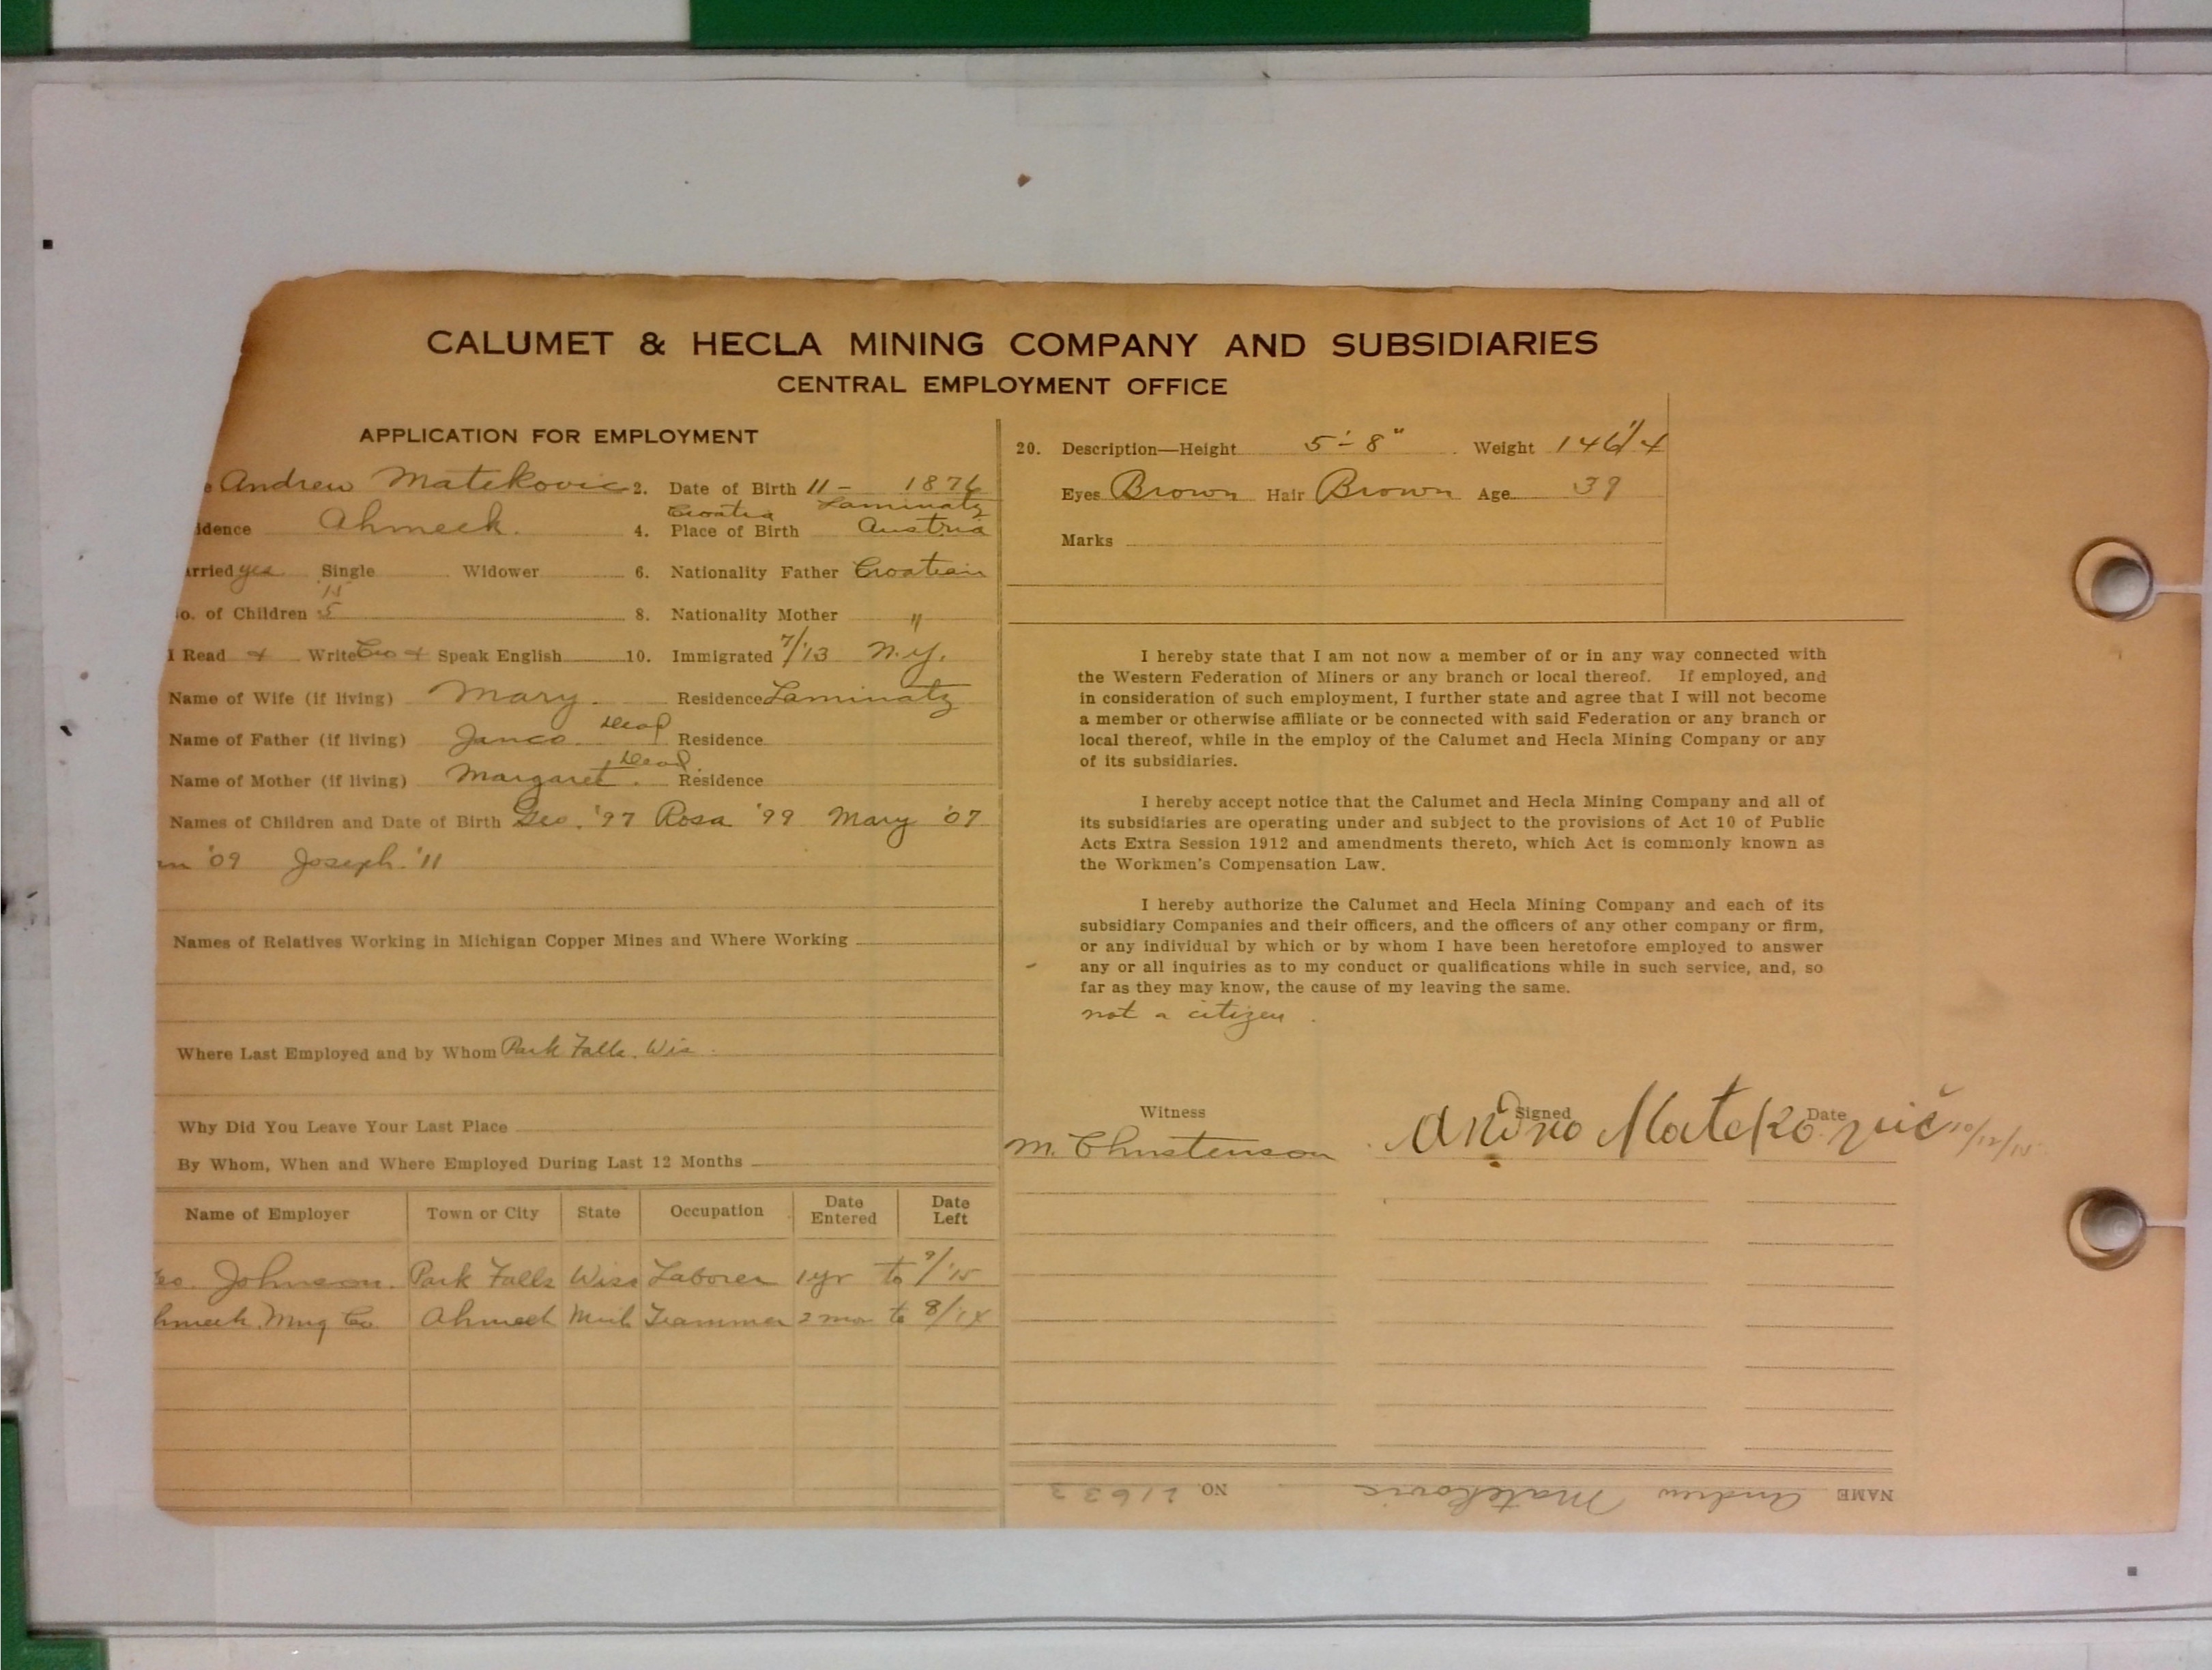 CALUMET & HECLA MINING COMPANY AND SUBSIDIARIES
CENTRAL EMPLOYMENT OFFICE
APPLICATION FOR EMPLOYMENT
Andrew Matekovic 2. Date of Birth 11 - 1876
Croatia Laminatz
idence Ahmeek. 4. Place of Birth Austria
arried yes Single Widower 6. Nationality Father Croatian
15
o. of Children 5 8. Nationality Mother "
I Read & Write Cro & Speak English 10. Immigrated 7/'13 N.Y.
Name of Wife (if living) Mary. Residence Laminatz
Name of Father (if living) Janco. Dead Residence
Name of Mother (if living) Margaret. Dead. Residence
Names of Children and Date of Birth Geo. '97 Rosa '99 Mary '07
'09 Joseph. '11
Names of Relatives Working in Michigan Copper Mines and Where Working
Where Last Employed and by Whom Park Falls. Wis.
Why Did You Leave Your Last Place
By Whom, When and Where Employed During Last 12 Months
Name of Employer Town or City State Occupation Date Entered Date Left
eo. Johnson. Park Falls Wiss Laborer 1 yr to 9/'15
hmeek Mng Co Ahmeek Mich Trammer 2 mos to 8/'14
20. Description—Height 5'-8" Weight 146 1/4
Eyes Brown Hair Brown Age 39
Marks
I hereby state that I am not now a member of or in any way connected with
the Western Federation of Miners or any branch or local thereof. If employed, and
in consideration of such employment, I further state and agree that I will not become
a member or otherwise affiliate or be connected with said Federation or any branch or
local thereof, while in the employ of the Calumet and Hecla Mining Company or any
of its subsidiaries.
I hereby accept notice that the Calumet and Hecla Mining Company and all of
its subsidiaries are operating under and subject to the provisions of Act 10 of Public
Acts Extra Session 1912 and amendments thereto, which Act is commonly known as
the Workmen's Compensation Law.
I hereby authorize the Calumet and Hecla Mining Company and each of its
subsidiary Companies and their officers, and the officers of any other company or firm,
or any individual by which or by whom I have been heretofore employed to answer
any or all inquiries as to my conduct or qualifications while in such service, and, so
far as they may know, the cause of my leaving the same.
not a citizen.
Witness Signed Date
M. Christenson Andro Matekovič 10/12/15
NAME Andrew Matekovic NO. 21633